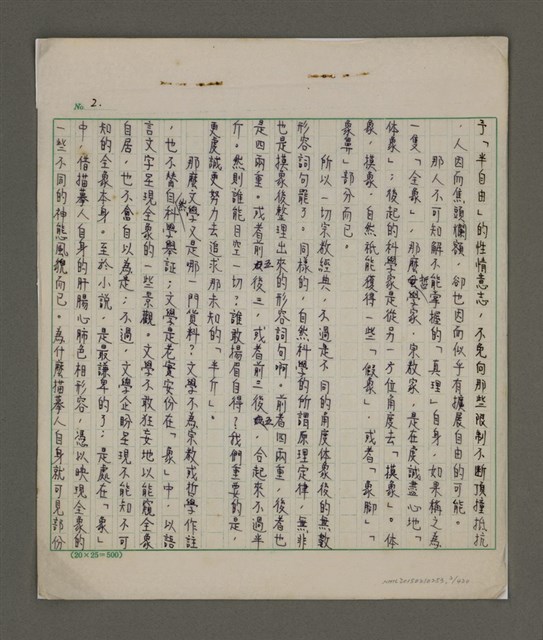 No. 2.
予「半自由」的性情意志，不免向那些限制不斷頂撞抵抗
，人因而焦頭爛額，卻也因而似乎有擴展自由的可能。
那人不可知解不能掌握的「真理」自身，如果稱之為
一隻「全象」，那麼哲學家、宗教家，是在虔誠盡心地「
体象」；後起的科學家是從另一方位角度去「摸象」。体
象，摸象，自然祇能獲得一些「假象」，或者「象腳」「
象鼻」部分而已。
所以一切宗教經典，不過是不同的角度体象後的無數
形容詞句罷了。同樣的，自然科學的所謂原理定律，無非
也是摸象後整理出來的形容詞句啊。前者四兩重，後者也
是四兩重。或者前五後三，或者前三後五，合起來不過半
斤。然則誰能目空一切？誰敢揚眉自得？我們重要的是，
更虔誠更努力去追求那未知的「半斤」。
那麼文學又是那一門貨料？文學不為宗教或哲學作註
，也不替自然科學舉証；文學是老實安份在「象」中，以語
言文字呈現全象的一些景觀。文學不敢狂妄地以能窺全象
自居，也不會自以為是；不過，文學企盼呈現不能知不可
知的全象本身。至於小說，是最謙卑的了；是處在「象」
中，借描摹人自身的肝腸心肺色相形容，憑以映現全象的
一些不同的神態風貌而已。為什麼描摹人自身就可見部份
(20×25=500)